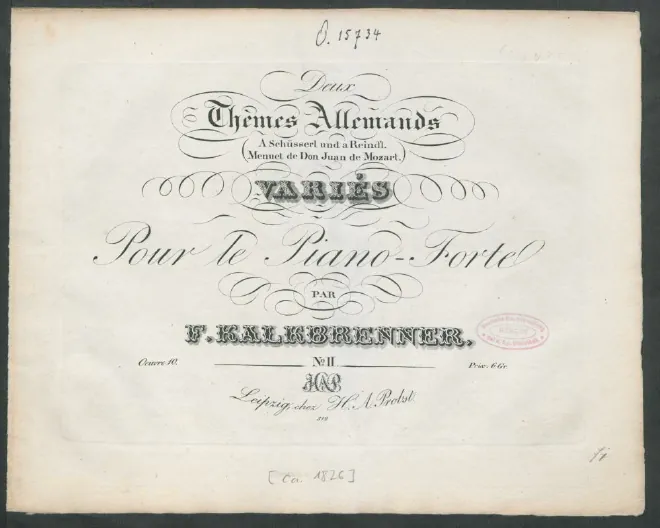 O. 15734
Deux
Thèmes Allemands
A Schüsserl und a Reindl.
(Menuet de Don Juan de Mozart.)
VARIÉS
Pour le Piano-Forte
PAR
F. KALKBRENNER.
Oeuvre 10.
No. II
Prix: 6 Gr.
HAP
Leipzig, chez H. A. Probst.
219
[ca. 1826]